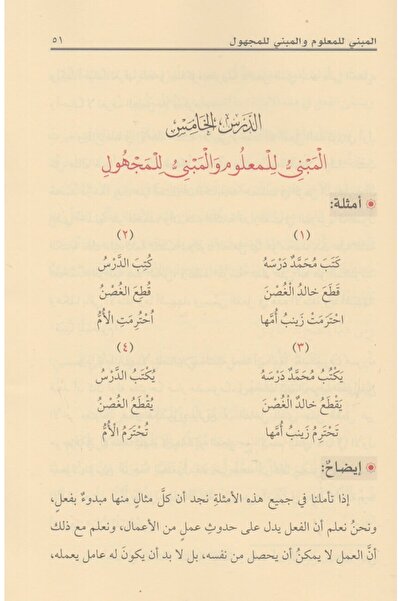 المبني للمعلوم والمبني للمجهول ٥١
الدَرسُ الخَامِسُ
المَبْنِيُّ لِلْمَعلُومِ وَالْمَبْنِيُّ لِلْمَجْهُولِ
أمثلة:
(١) (٢)
كَتَبَ مُحَمَّدٌ دَرْسَهُ كُتِبَ الدَّرْسُ
قَطَعَ خالدُ الْغُصْنَ قُطِعَ الغُصْنُ
احْتَرَمَتْ زَينبُ أُمَّها اُحْتُرِمَتِ الْأُمُّ
(٣) (٤)
يَكْتُبُ مُحَمَّدٌ دَرْسَهُ يُكْتَبُ الدَّرْسُ
يَقْطَعُ خالدٌ الْغُصْنَ يُقْطَعُ الغُصْنُ
تَحْتَرِمُ زَينبُ أُمَّها تُحْتَرَمُ الْأُمُّ
إيضاحٌ:
إذا تأملنا في جميعِ هذه الأمثلةِ نجد أن كلَّ مثالٍ منها مبدوءٌ بفعلٍ،
ونحنُ نعلم أن الفعل يدل على حدوثِ عملٍ من الأعمال، ونعلم مع ذلك
أنَّ العملَ لا يمكنُ أن يحصل من نفسه، بل لا بد أن يكونَ له عامل يعمله،